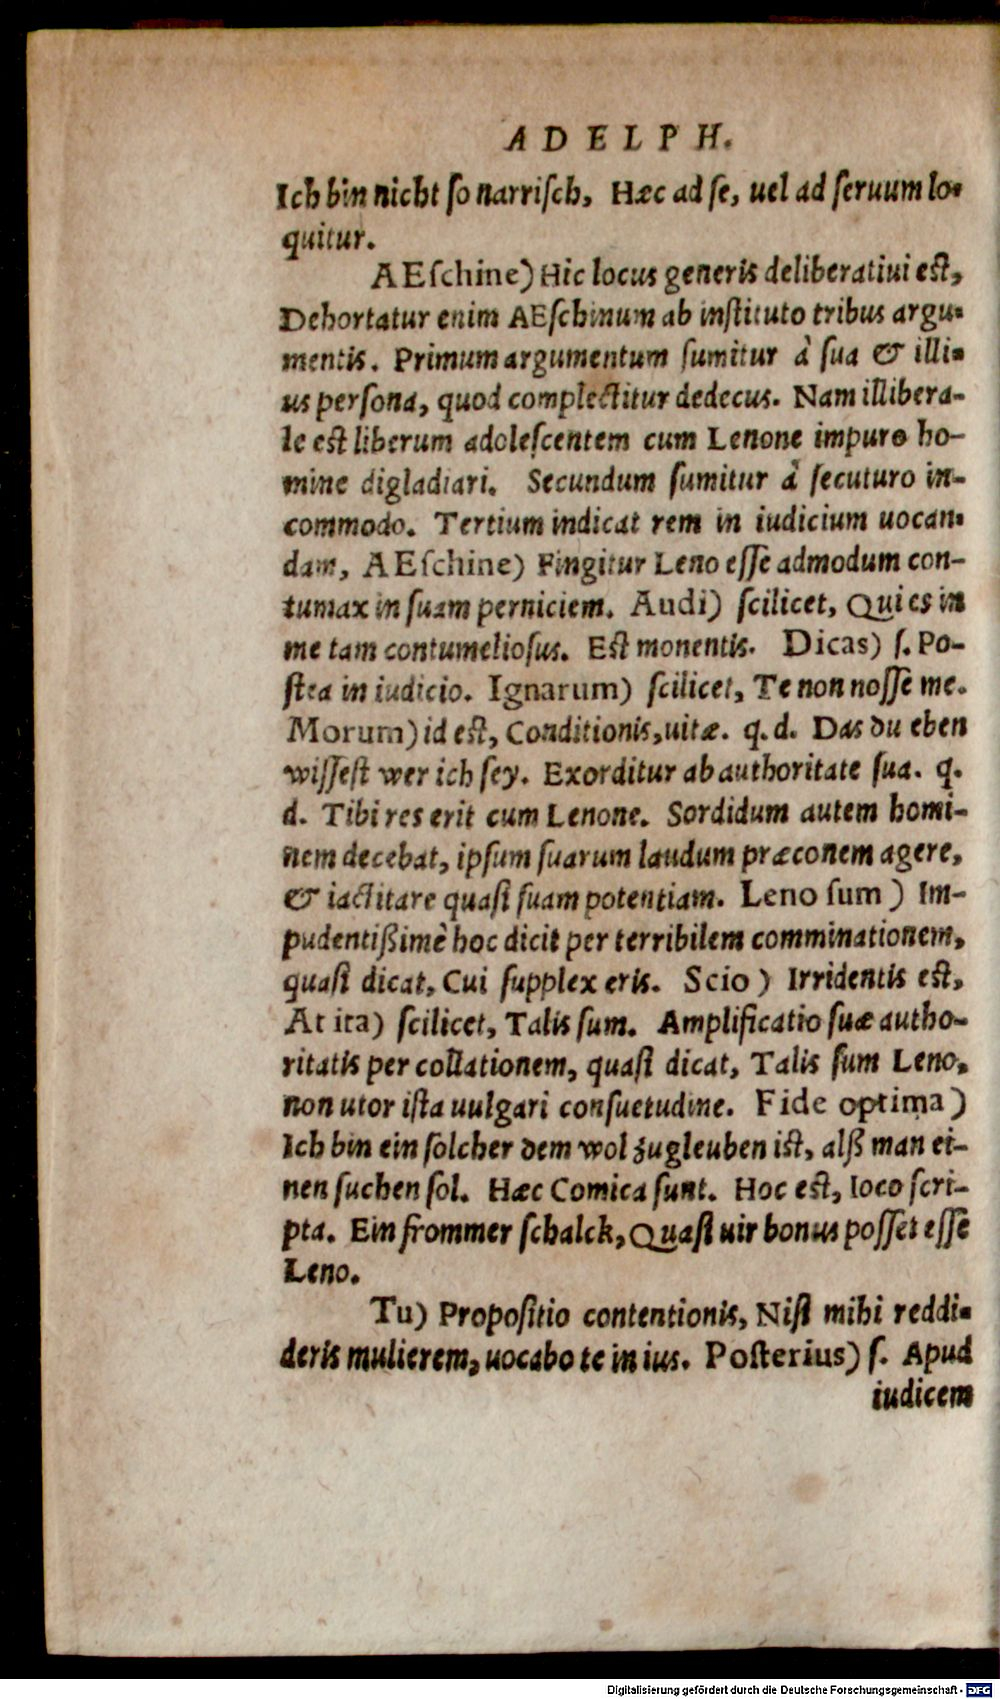 ADELPH.
Ich bin nicht ſo narriſch, Hæc ad ſe, uel ad ſeruum lo-
quitur.
AEſchine) Hic locus generis deliberatiui eſt,
Dehortatur enim AEſchinum ab inſtituto tribus argu-
mentis. Primum argumentum ſumitur à ſua & illi-
us perſona, quod complectitur dedecus. Nam illibera-
le eſt liberum adoleſcentem cum Lenone impuro ho-
mine digladiari. Secundum ſumitur à ſecuturo in-
commodo. Tertium indicat rem in iudicium uocan-
dam, AEſchine) Fingitur Leno eſſe admodum con-
tumax in ſuam perniciem. Audi) ſcilicet, Qui es in
me tam contumelioſus. Eſt monentis. Dicas) ſ. Po-
ſtea in iudicio. Ignarum) ſcilicet, Te non noſſe me.
Morum) id eſt, Conditionis, uitæ. q. d. Das du eben
wiſſeſt wer ich ſey. Exorditur ab authoritate ſua. q.
d. Tibi res erit cum Lenone. Sordidum autem homi-
nem decebat, ipſum ſuarum laudum præconem agere,
& iactitare quaſi ſuam potentiam. Leno ſum) Im-
pudentißimè hoc dicit per terribilem comminationem,
quaſi dicat, Cui ſupplex eris. Scio) Irridentis eſt,
At ita) ſcilicet, Talis ſum. Amplificatio ſuæ autho-
ritatis per collationem, quaſi dicat, Talis ſum Leno,
non utor iſta uulgari conſuetudine. Fide optima)
Ich bin ein ſolcher dem wol zugleuben iſt, alß man ei-
nen ſuchen ſol. Hæc Comica ſunt. Hoc eſt, Ioco ſcri-
pta. Ein frommer ſchalck, Quaſi uir bonus poſſet eſſe
Leno.
Tu) Propoſitio contentionis, Niſi mihi reddi-
deris mulierem, uocabo te in ius. Poſterius) ſ. Apud
iudicem
Digitalisierung gefördert durch die Deutsche Forschungsgemeinschaft - DFG